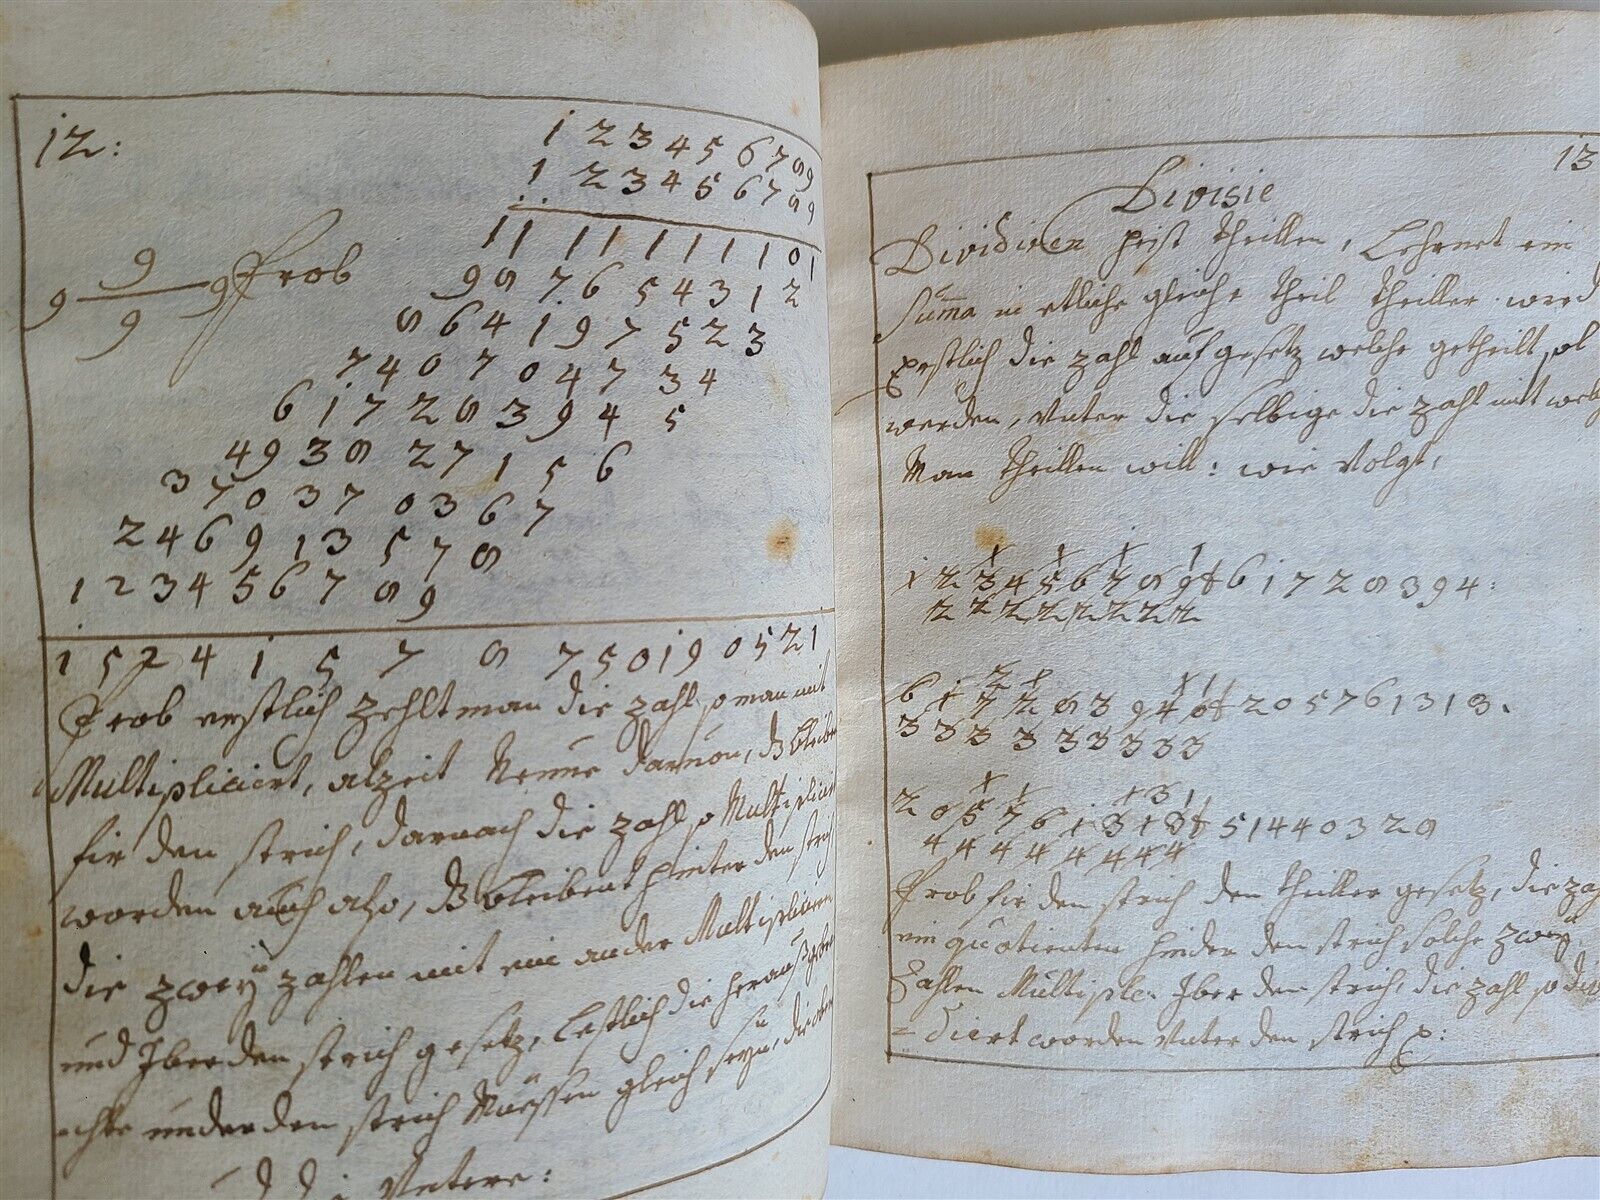 12:
1 2 3 4 5 6 7 8 9
1 2 3 4 5 6 7 8 9
1 1 1 1 1 1 1 1 0 1
9 8 7 6 5 4 3 1 2
8 6 4 1 9 7 5 2 3
7 4 0 7 0 4 7 3 4
6 1 7 2 8 3 9 4 5
4 9 3 8 2 7 1 5 6
3 7 0 3 7 0 3 6 7
2 4 6 9 1 3 5 7 8
1 2 3 4 5 6 7 8 9
9
9 9 Prob
9
1 5 2 4 1 5 7 8 7 5 0 1 9 0 5 2 1
Prob erstlich zehlt man die zahl so man mit
Multipliciert, alzeit Neune daruon, dz bleibt
fir den strich, darnach die zahl so Multiplicirt
worden auch also, dz bleibent hinter den strich
die zweÿ zahlen mit ein ander Multipliciren
und Iber den strich gesetz, Lestlich die heraus
under den strich Müessen gleich seyn, die ober
Vntere:
13
Divisie
Dividiren heist theillen, Lehrnet ein
Sum̄a in etliche gleiche theil theillen wird
erstlich die zahl auf gesetz welche getheilt sol
werden, Vnter die selbige die zahl mit welch
Man theillen will: wie Volgt,
1 1 1 1
1 2 3 4 5 6 7 8 9 f 6 1 7 2 8 3 9 4:
2 2 2 2 2 2 2 2
2 1 1 1
6 1 7 2 8 3 9 4 f 2 0 5 7 6 1 3 1 3.
3 3 3 3 3 3 3 3 3
1 1 1 3 1
2 0 5 7 6 1 3 1 3 f 5 1 4 4 0 3 2 8
4 4 4 4 4 4 4 4
Prob fir den strich den theiller gesetz, die zahl
im quotienten hinder den strich solche zweÿ
Zahlen Multiple. Iber den strich, die zahl so divi
= diert worden Vnter den strich